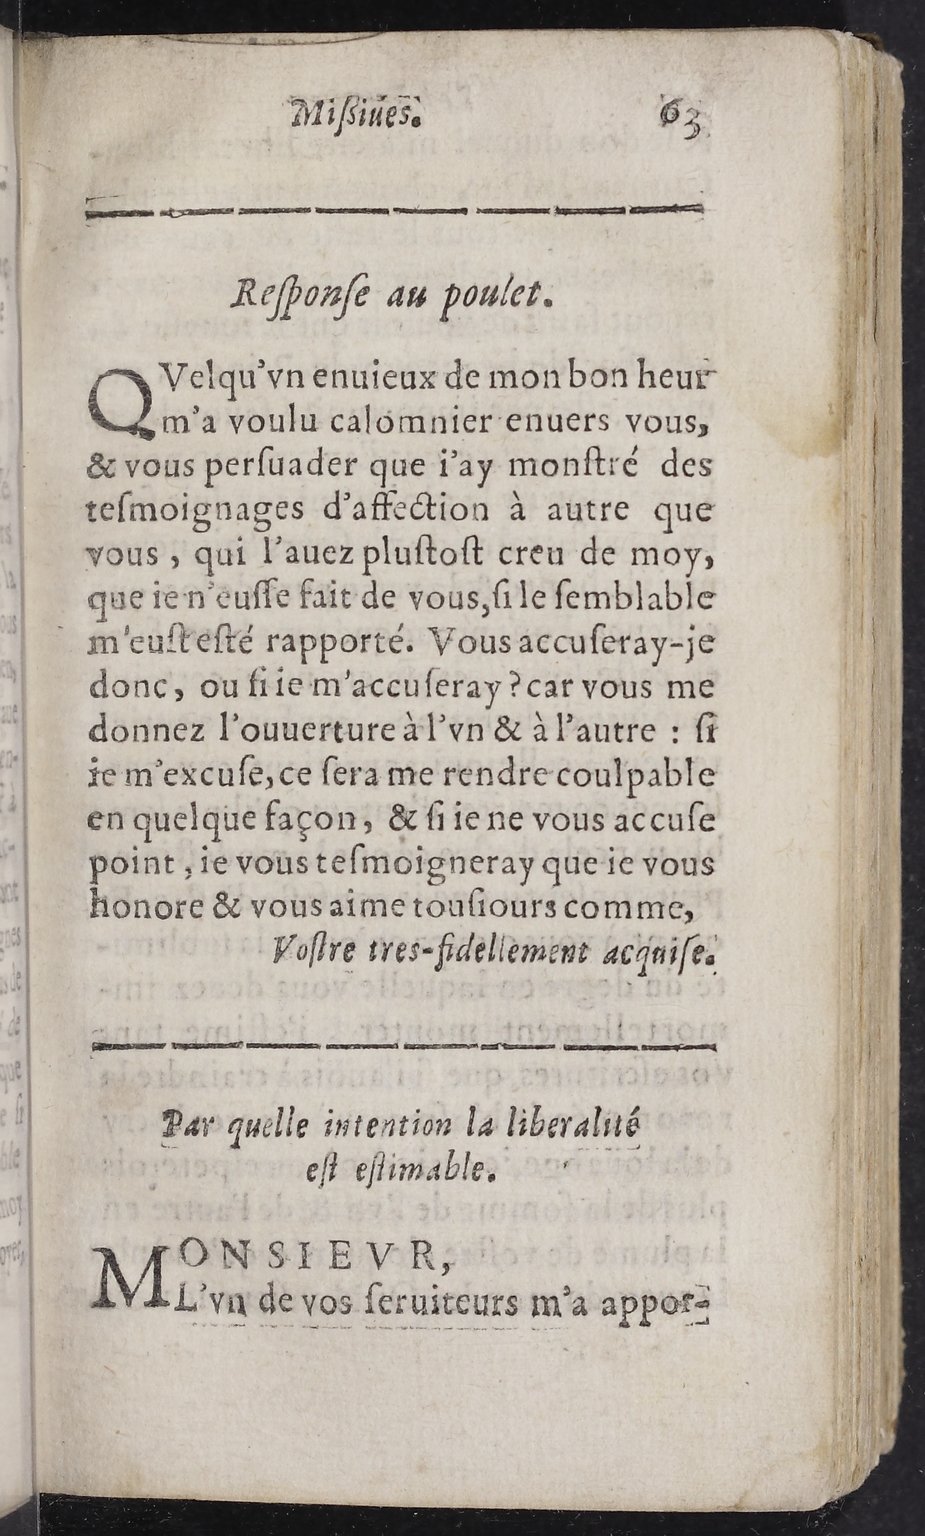 Miſſiues. 63
Reſponſe au poulet.
QVelqu'vn enuieux de mon bon heur
m'a voulu calomnier enuers vous,
& vous perſuader que i'ay monſtré des
teſmoignages d'affection à autre que
vous, qui l'auez pluſtoſt creu de moy,
que ie n'euſſe fait de vous, ſi le ſemblable
m'euſt eſté rapporté. Vous accuſeray-je
donc, ou ſi ie m'accuſeray? car vous me
donnez l'ouuerture à l'vn & à l'autre : ſi
ie m'excuſe, ce ſera me rendre coulpable
en quelque façon, & ſi ie ne vous accuſe
point, ie vous teſmoigneray que ie vous
honore & vous aime touſiours comme,
Voſtre tres-fidellement acquiſe.
Par quelle intention la liberalité
eſt eſtimable.
MONSIEVR,
L'vn de vos ſeruiteurs m'a appor-